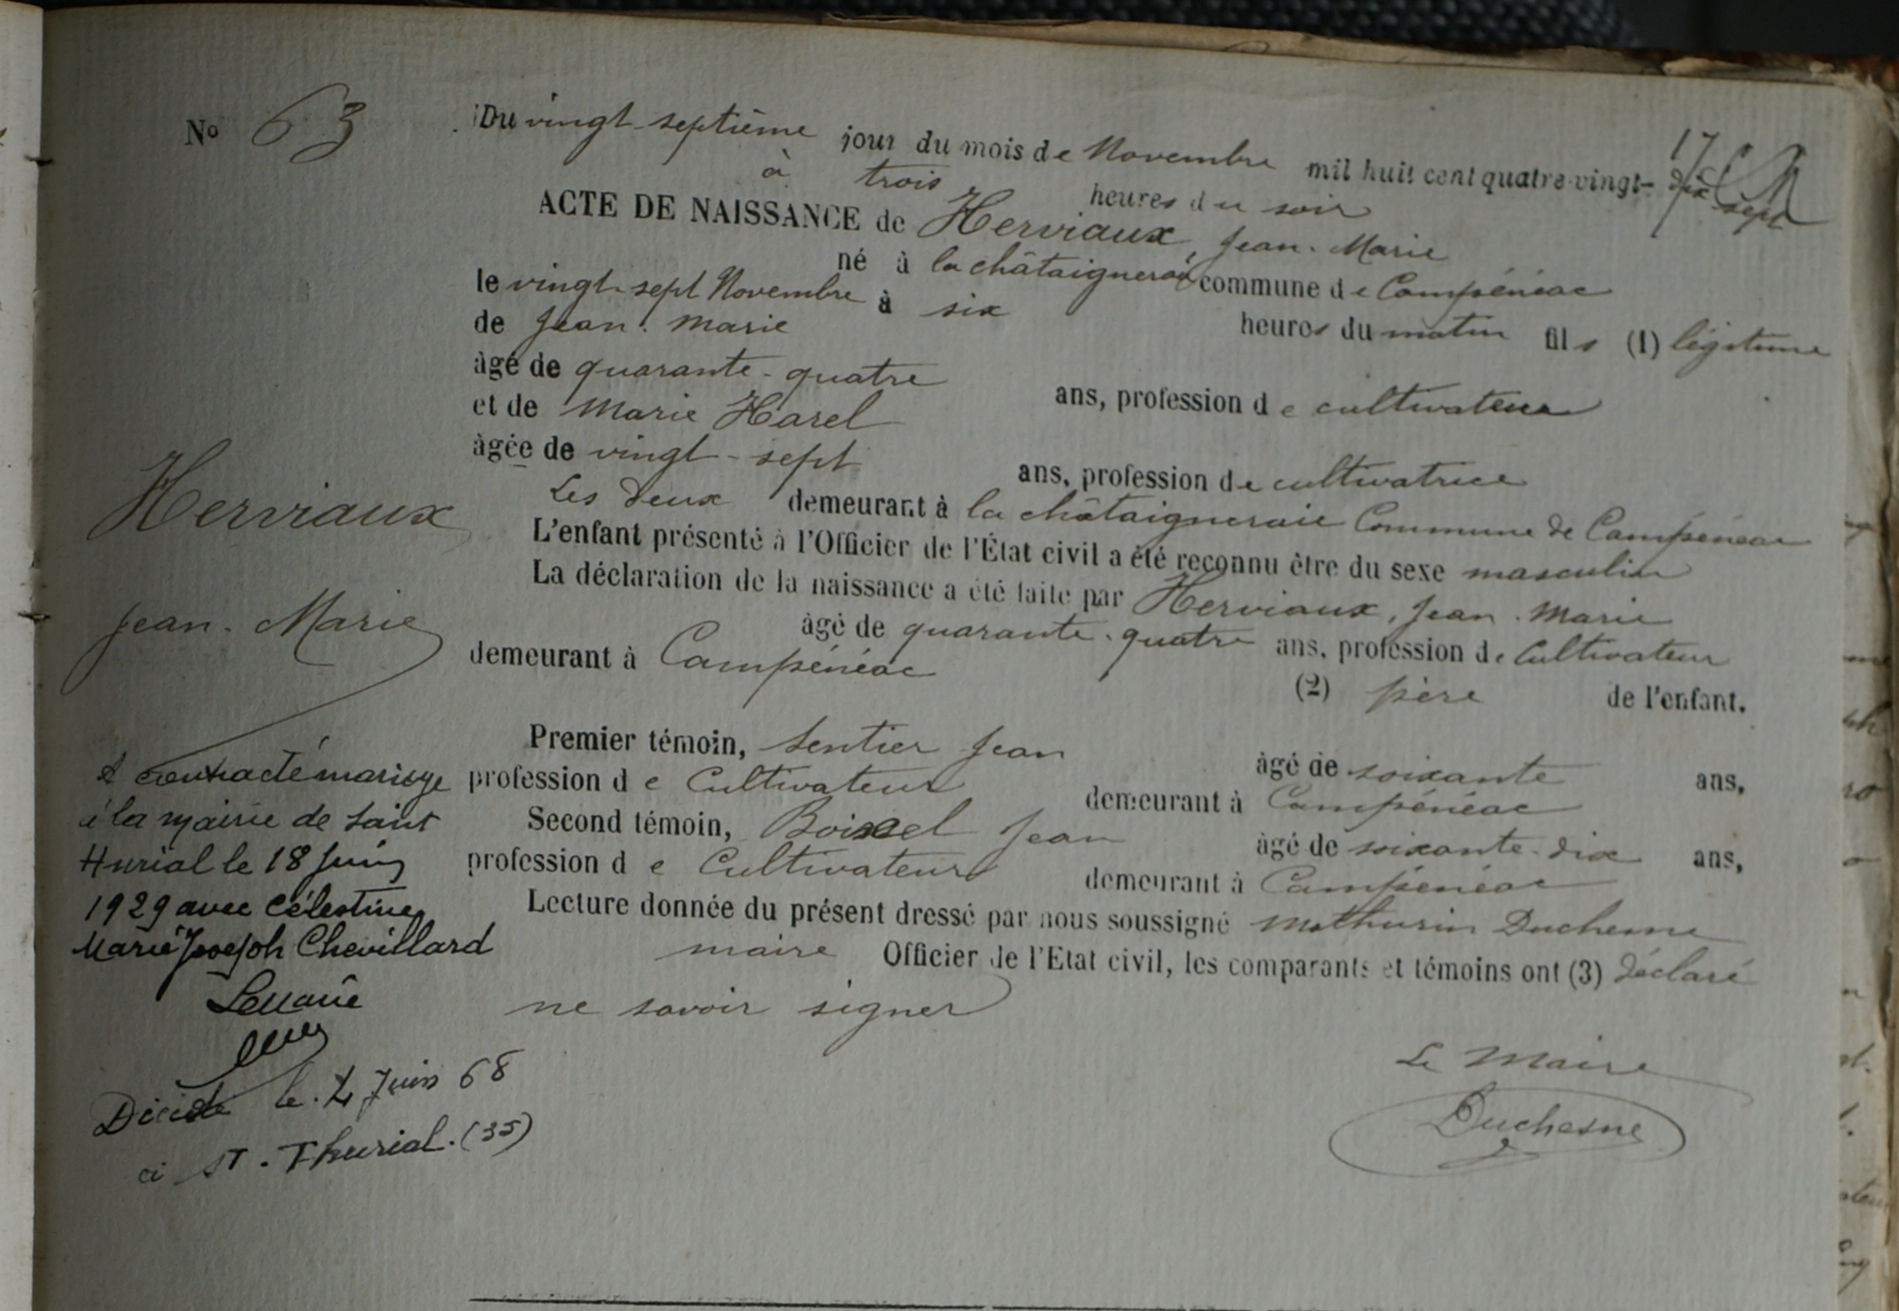 17
No 63
Du vingt-septième jour du mois de Novembre mil huit cent quatre-vingt-dix sept
à trois heures du soir
ACTE DE NAISSANCE de Herviaux, Jean-Marie
né à la châtaigneraie commune de Campénéac
le vingt-sept Novembre à six heures du matin fils (1) légitime
de Jean-Marie
âgé de quarante-quatre ans, profession de cultivateur
et de Marie Harel
âgée de vingt-sept ans, profession de cultivatrice
Les deux demeurant à la châtaigneraie Commune de Campénéac
L'enfant présenté à l'Officier de l'État civil a été reconnu être du sexe masculin
La déclaration de la naissance a été faite par Herviaux, Jean-Marie
âgé de quarante-quatre ans, profession de Cultivateur
demeurant à Campénéac (2) père de l'enfant.
Premier témoin, Sentier Jean âgé de soixante ans,
profession de Cultivateur demeurant à Campénéac
Second témoin, Boixel Jean âgé de soixante-dix ans,
profession de Cultivateur demeurant à Campénéac
Lecture donnée du présent dressé par nous soussigné Mathurin Duchesne
maire Officier de l'Etat civil, les comparants et témoins ont (3) déclaré
ne savoir signer
Le Maire
Duchesne
Herviaux
Jean-Marie
A contracté mariage
à la mairie de Saint
Thurial le 18 Juin
1929 avec Célestine
Marie Joseph Chevillard
Le Maire
Décédé le 4 Juin 68
à ST-Thurial (35)